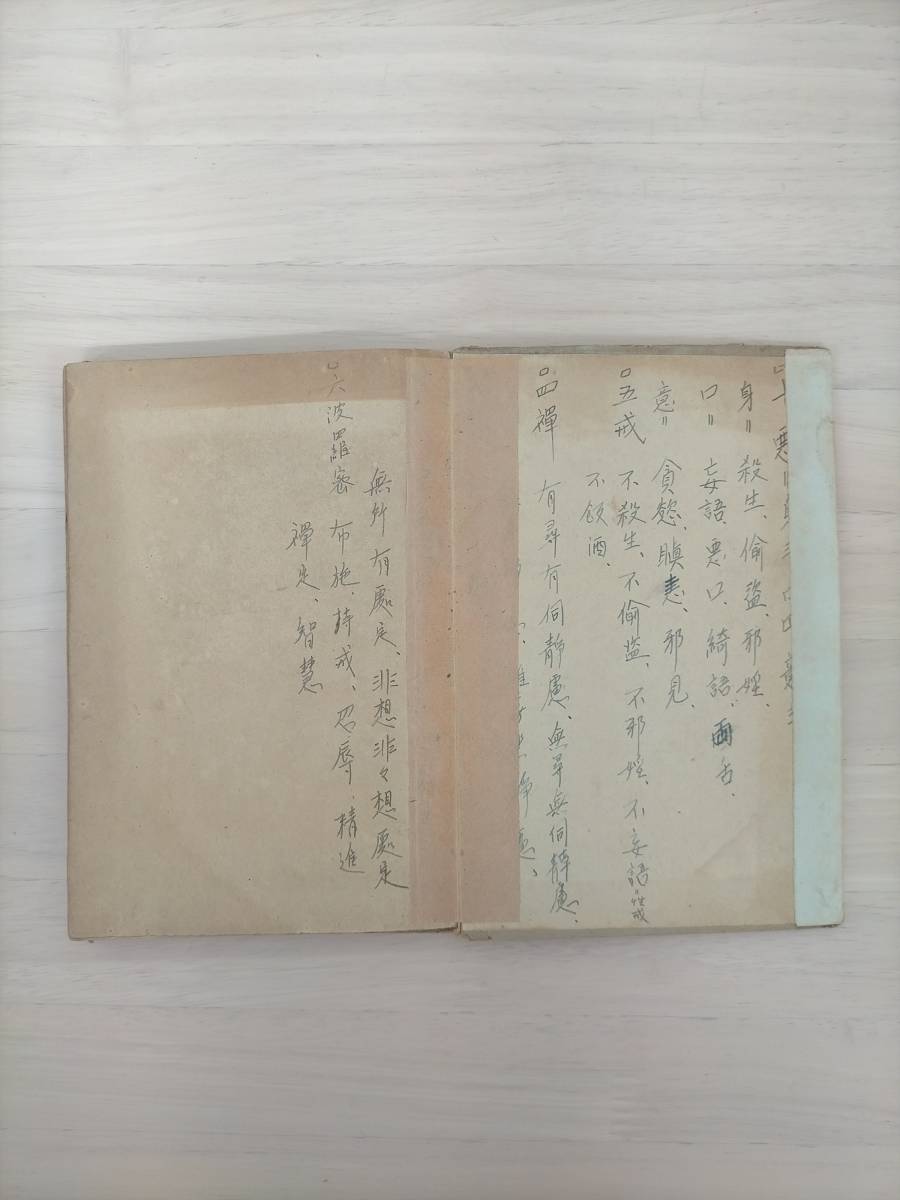 十悪
身〃殺生、偷盗、邪婬、
口〃妄語、悪口、綺語、両舌、
意〃貪慾、瞋恚、邪見、
□五戒 不殺生、不偷盗、不邪婬、不妄語〃性戒
不飲酒、
□四禅 有尋有伺静慮、無尋無伺静慮、
無所有處定、非想非々想處定
□六波羅密 布施、持戒、忍辱、精進
禅定、智慧